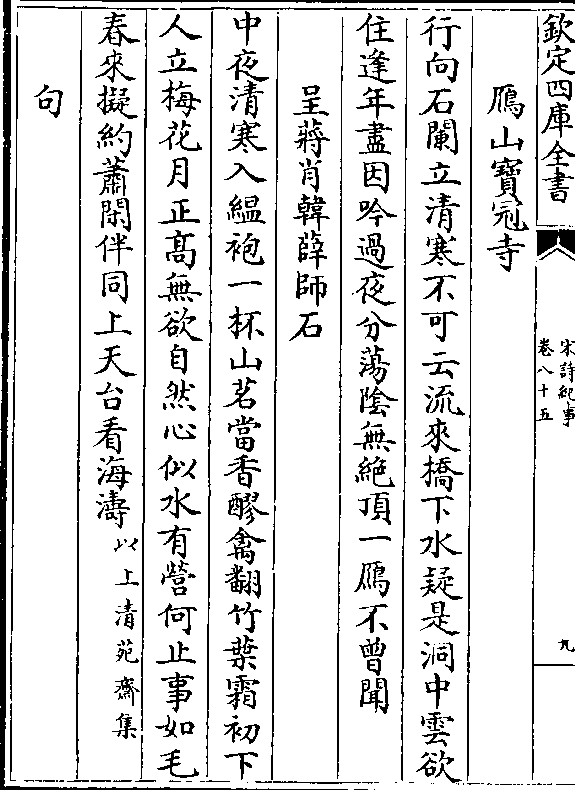 欽定四庫全書
宋詩紀事
卷八十五
九
鴈山寶冠寺
行向石闌立清寒不可云流來橋下水疑是洞中雲欲
住逢年盡因吟過夜分蕩陰無絶頂一鴈不曾聞
呈蔣肖韓薛師石
中夜清寒入緼袍一杯山茗當香醪禽翻竹葉霜初下
人立梅花月正髙無欲自然心似水有營何止事如毛
春來擬約蕭閒伴同上天台看海濤以上清苑齋集
句